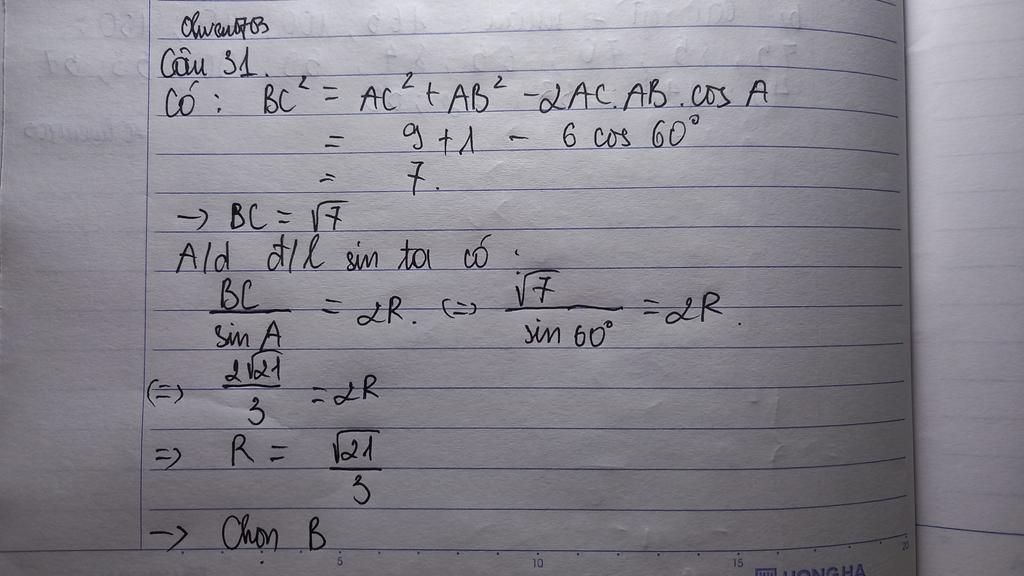 Câu 31.
Có : BC² = AC² + AB² - 2AC.AB.cos A
= 9 + 1 - 6 cos 60°
= 7.
→ BC = √7
A/d đ/l sin ta có :
BC/sin A = 2R. (=) √7/sin 60° = 2R.
(=) 2√21/3 = 2R
=> R = √21/3
→ Chọn B
5 10 15 20
HONG HA